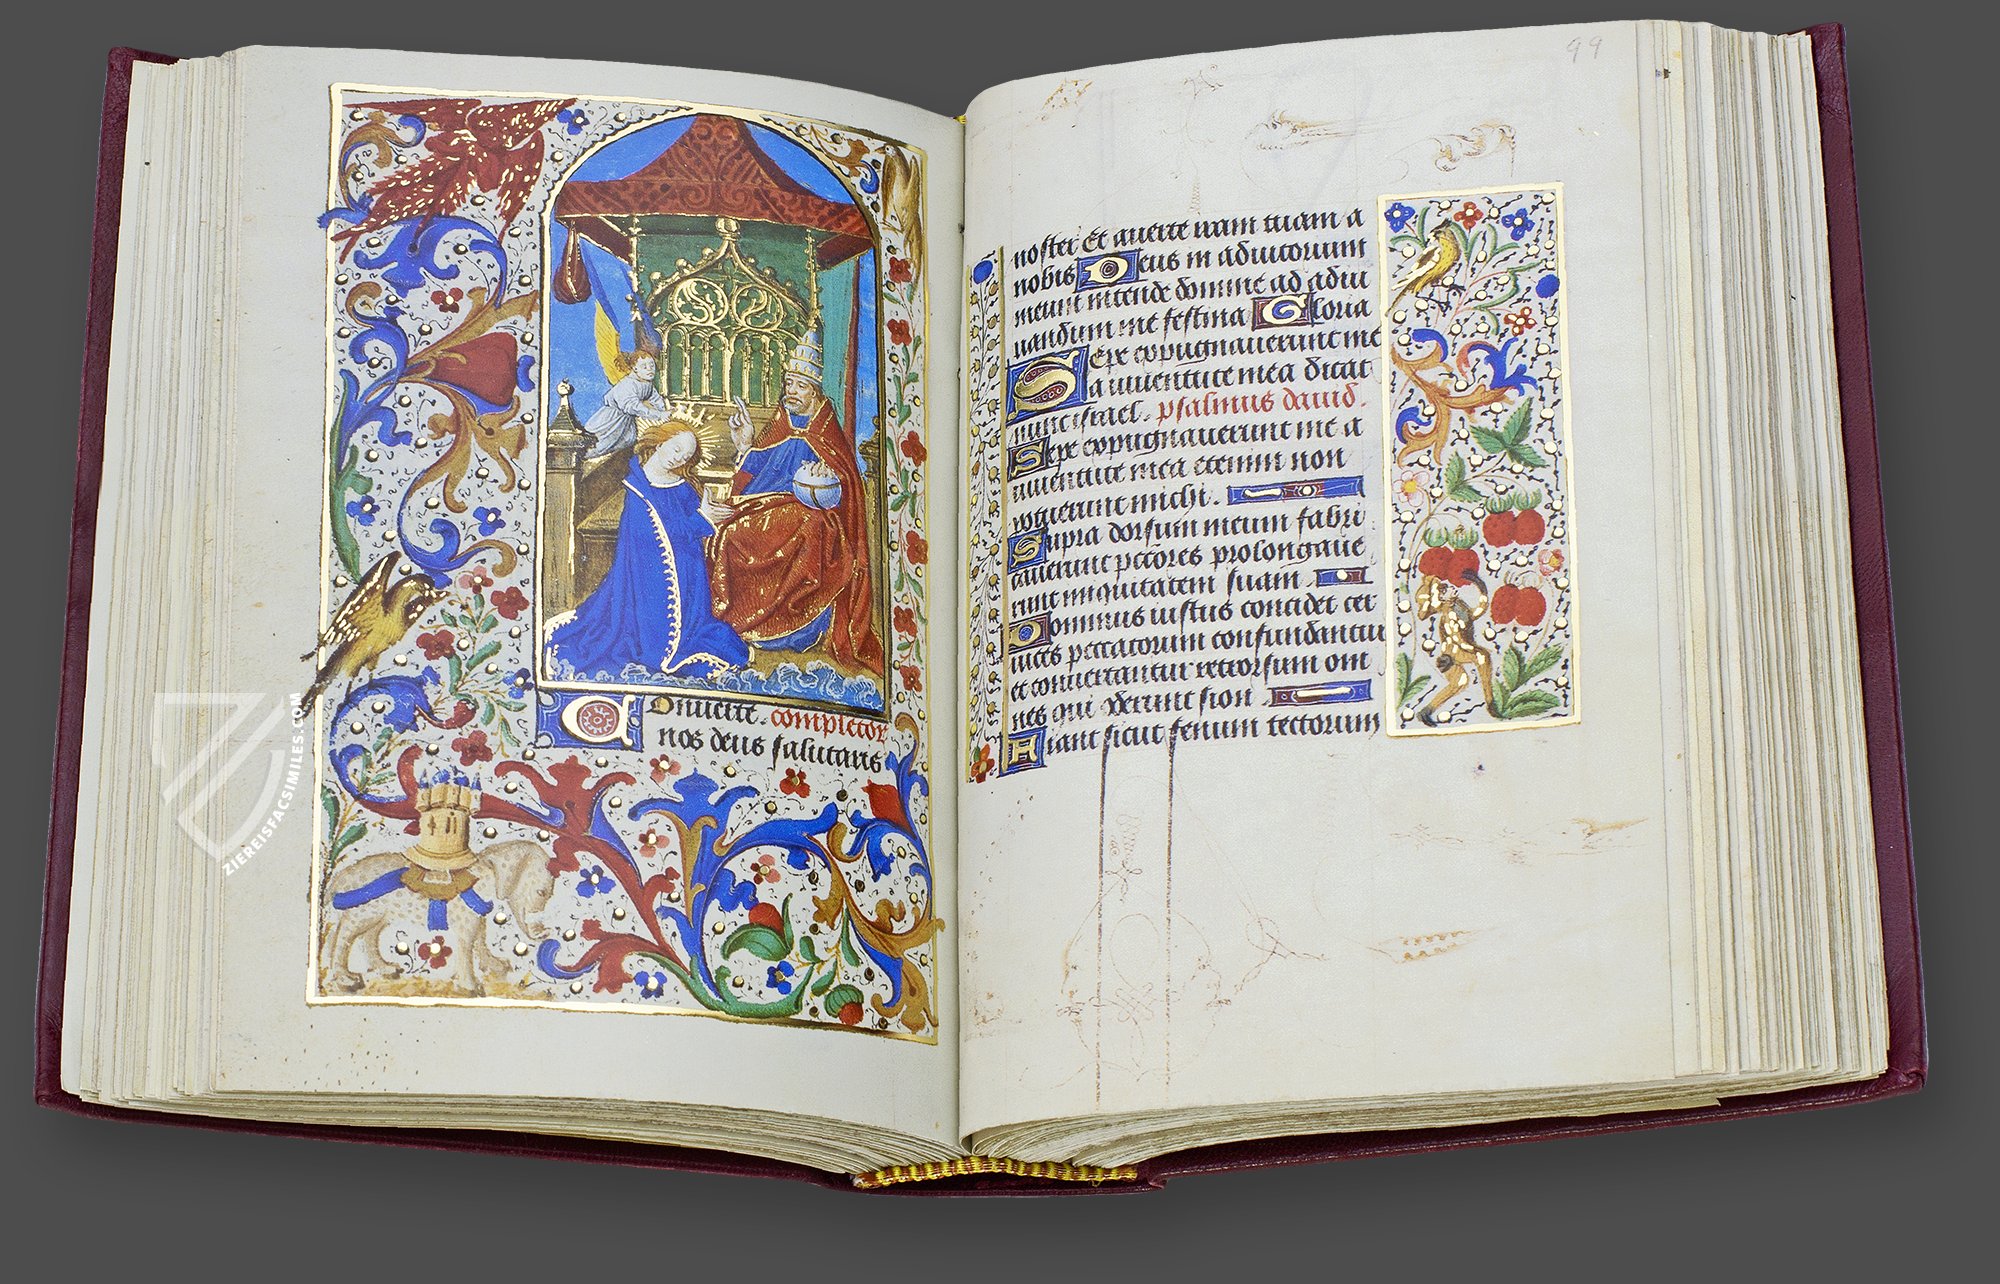 Onuerte. completor
nos deus salutaris
ZIEREISFACSIMILES.COM
99
noster Et auerte iram tuam a
nobis Deus in adiutorium
meum intende domine ad adiu
uandum me festina Gloria
Sepe expugnauerunt me
a iuuentute mea dicat
nunc israel. psalmus dauid.
Sepe expugnauerunt me a
iuuentute mea etenim non
potuerunt michi.
Supra dorsum meum fabri
cauerunt peccores prolongaue
runt iniquitatem suam
Dominus iustus concidet cer
uices peccatorum confundantur
et conuertantur retrorsum om
nes qui oderunt sion
Fiant sicut fenum tectorum